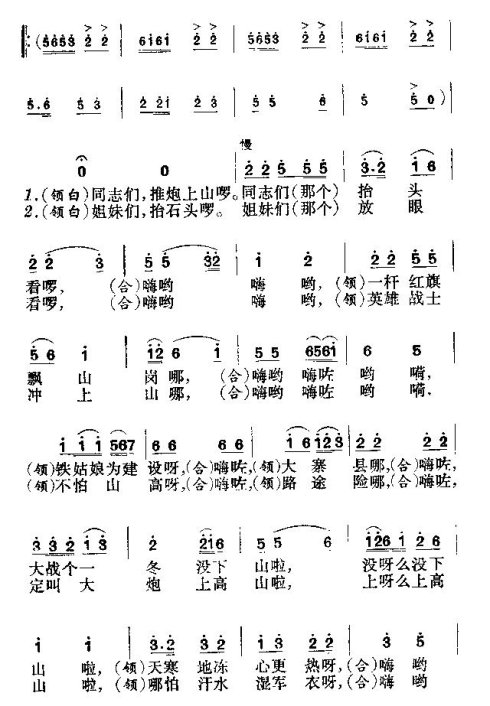 (5653 2 2 | 6161 2 2 | 5653 2 2 | 6161 2 2 |
5.6 5 3 | 2 21 2 3 | 5 5 6 | 5 5 0)
慢
0 0 | 2 2 5 5 5 | 3.2 1 6
1.(领白)同志们,推炮上山啰。同志们(那个) 抬 头
2.(领白)姐妹们,抬石头啰。 姐妹们(那个) 放 眼
2 2 3 | 5 5 32 | 1 2 | 2 2 5 5
看啰, (合)嗨哟 嗨 哟,(领)一杆 红旗
看啰, (合)嗨哟 嗨 哟,(领)英雄 战士
5 6 1 | 12 6 1 | 5 5 6561 | 6 5
飘 山 岗 哪, (合)嗨哟 嗨咗 哟 嗬,
冲 上 山 哪, (合)嗨哟 嗨咗 哟 嗬,
1 1 1 567 | 6 6 6 6 | 1 6 123 | 2 2 2 2
(领)铁姑娘为建 设呀,(合)嗨咗,(领)大 寨 县哪,(合)嗨咗,
(领)不怕 山 高呀,(合)嗨咗,(领)路 途 险哪,(合)嗨咗,
3 3 2 1 3 | 2 216 | 5 5 6 | 126 1 2 1
大战个一 冬 没下 山啦, 没呀么没下
定叫 大 炮 上高 山啦, 上呀么上高
1 1 | 3.2 3 2 | 1 3 2 2 | 3 5
山 啦,(领)天寒 地冻 心更 热呀,(合)嗨 哟
山 啦,(领)哪怕 汗水 湿军 衣呀,(合)嗨 哟